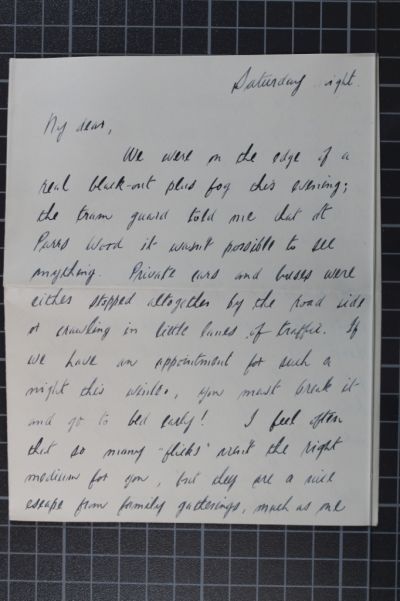 Saturday night.
My dear,
We were on the edge of a
real black-out plus fog this evening;
the tram guard told me that at
Parrs Wood it wasn't possible to see
anything. Private cars and buses were
either stopped altogether by the road side
or crawling in little lanes of traffic. If
we have an appointment for such a
night this winter, you must break it
and go to bed early! I feel often
that so many "flicks" aren't the right
medium for you, but they are a nice
escape from family gatherings, much as we